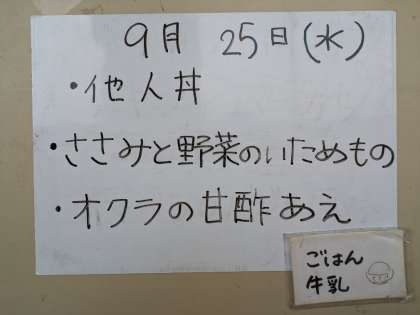 9月 25日(水)
・他人丼
・ささみと野菜のいためもの
・オクラの甘酢あえ
ごはん
牛乳